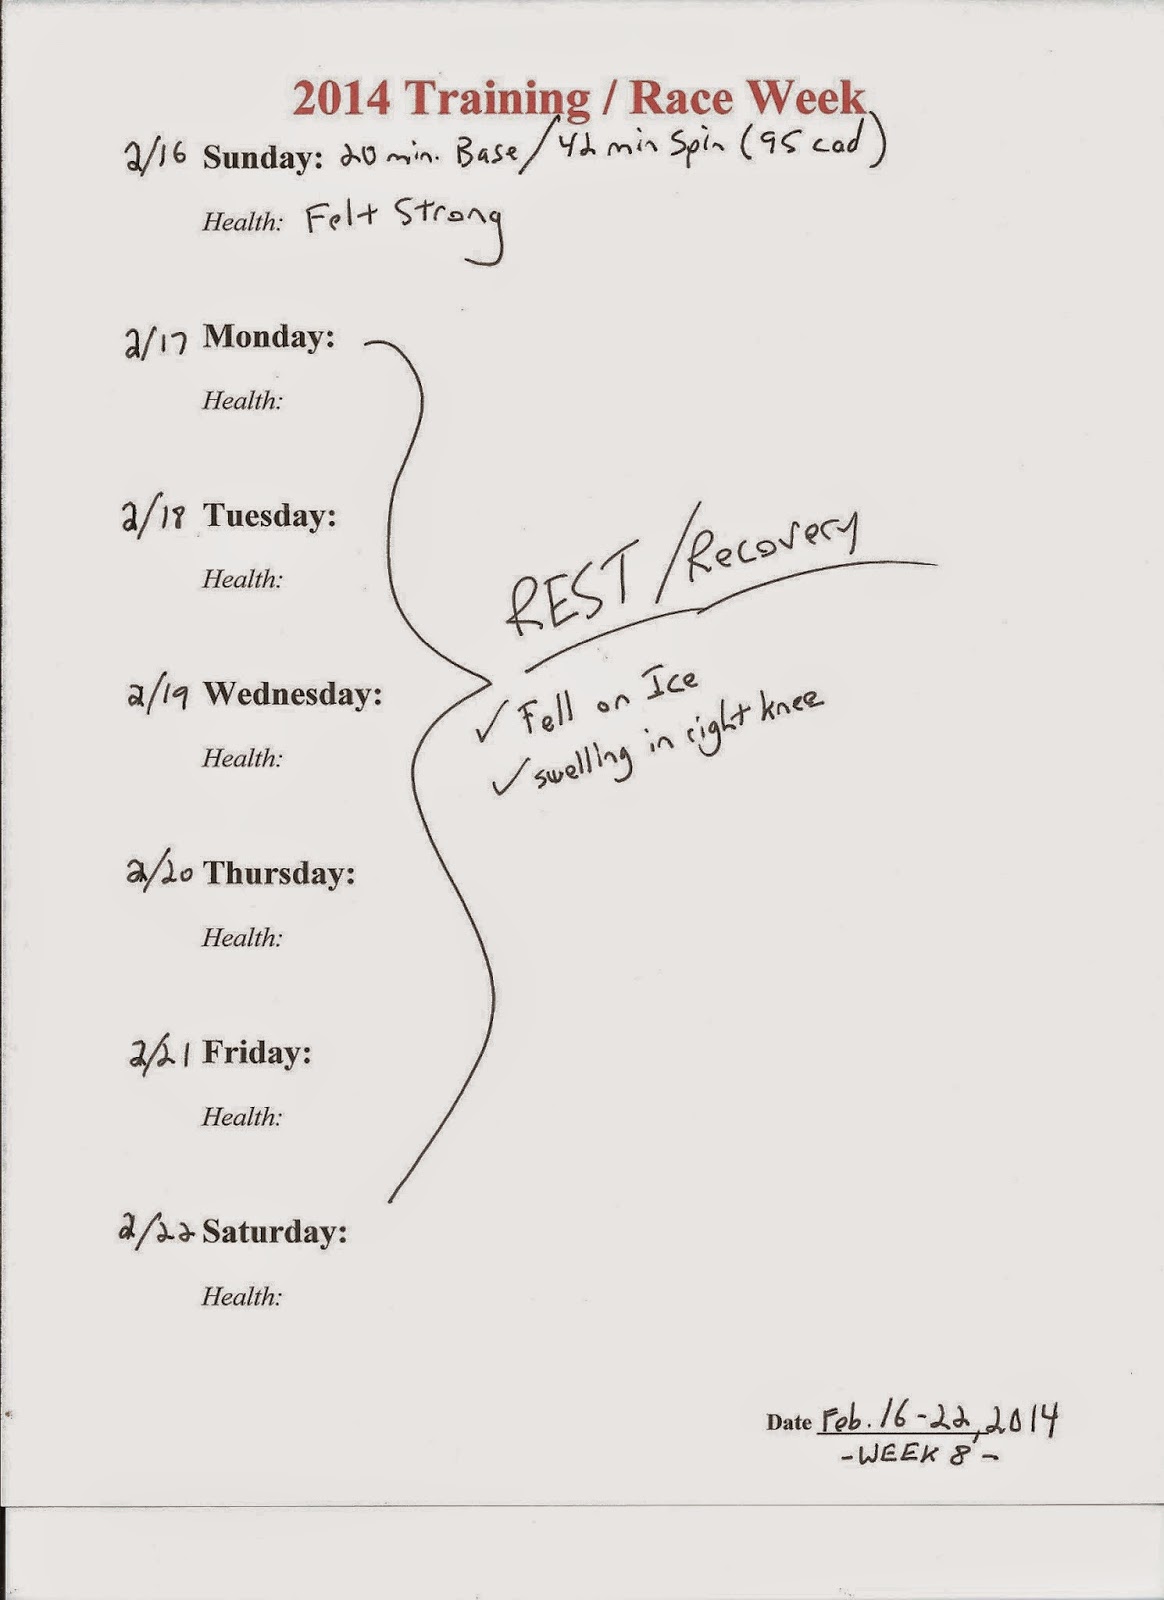 2014 Training / Race Week
2/16 Sunday: 20 min. Base/42 min Spin (95 cad)
Health: Felt Strong
2/17 Monday:
Health:
2/18 Tuesday:
Health:
REST/Recovery
2/19 Wednesday:
✓ Fell on Ice
✓ swelling in right knee
Health:
2/20 Thursday:
Health:
2/21 Friday:
Health:
2/22 Saturday:
Health:
Date Feb. 16-22, 2014
-WEEK 8-